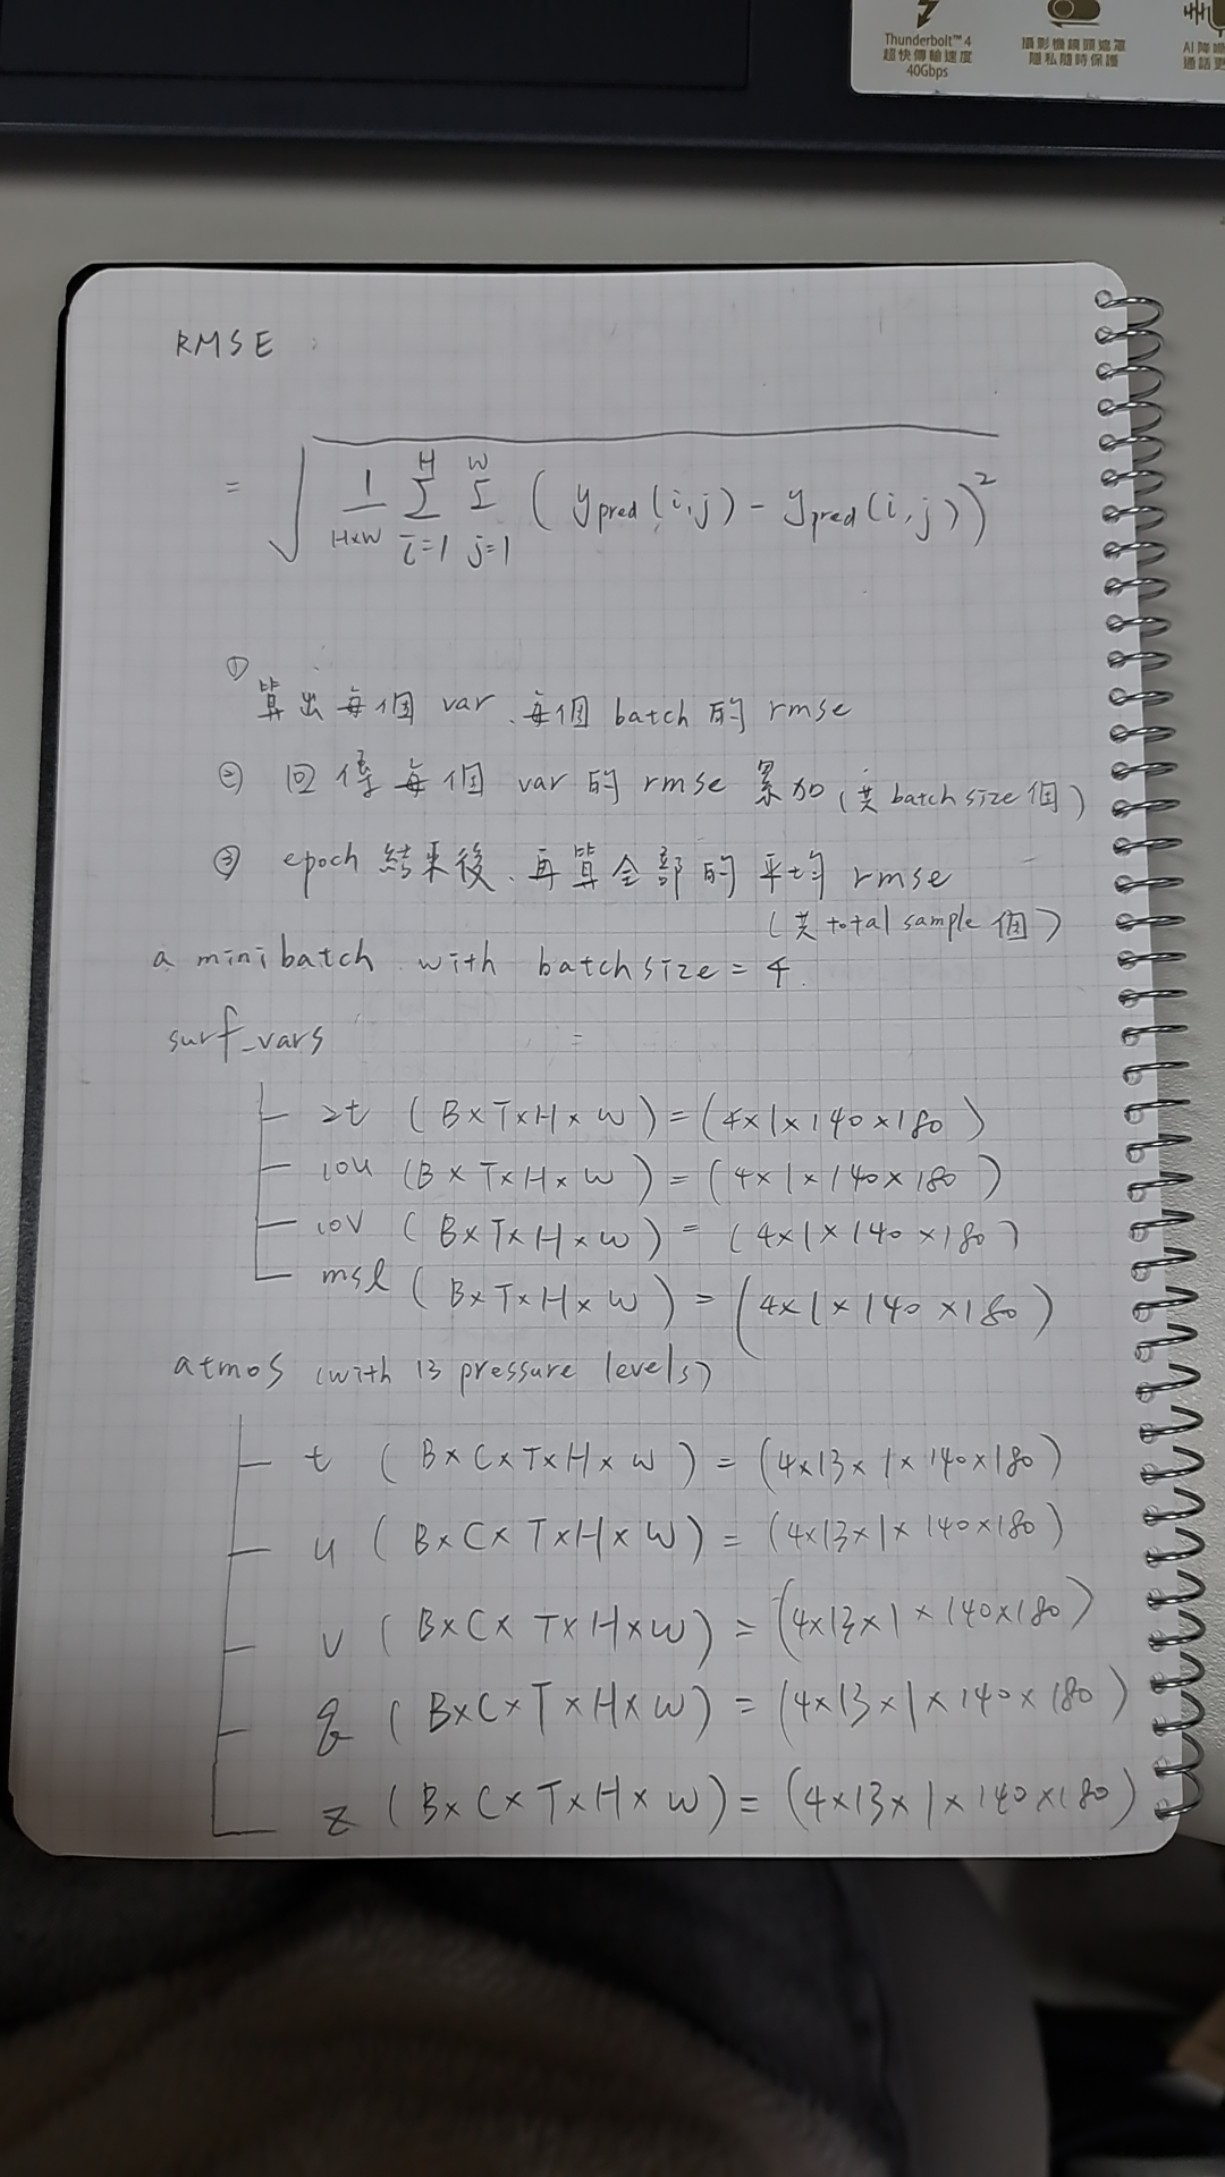 Thunderbolt™ 4
超快傳輸速度
40Gbps
攝影機鏡頭遮罩
隱私隨時保護
RMSE :
= √ 1/H×W Σ i=1 H Σ j=1 W ( y pred (i,j) - y pred (i,j) )²
① 算出每個 var、每個 batch 的 rmse
② 回傳每個 var 的 rmse 累加 (共 batch size 個)
③ epoch 結束後、再算全部的平均 rmse
(共 total sample 個)
a minibatch with batchsize = 4
surf_vars
2t (B×T×H×W) = (4×1×140×180)
10u (B×T×H×W) = (4×1×140×180)
10v (B×T×H×W) = (4×1×140×180)
msl (B×T×H×W) = (4×1×140×180)
atmos (with 13 pressure levels)
t (B×C×T×H×W) = (4×13×1×140×180)
u (B×C×T×H×W) = (4×13×1×140×180)
v (B×C×T×H×W) = (4×13×1×140×180)
q (B×C×T×H×W) = (4×13×1×140×180)
z (B×C×T×H×W) = (4×13×1×140×180)